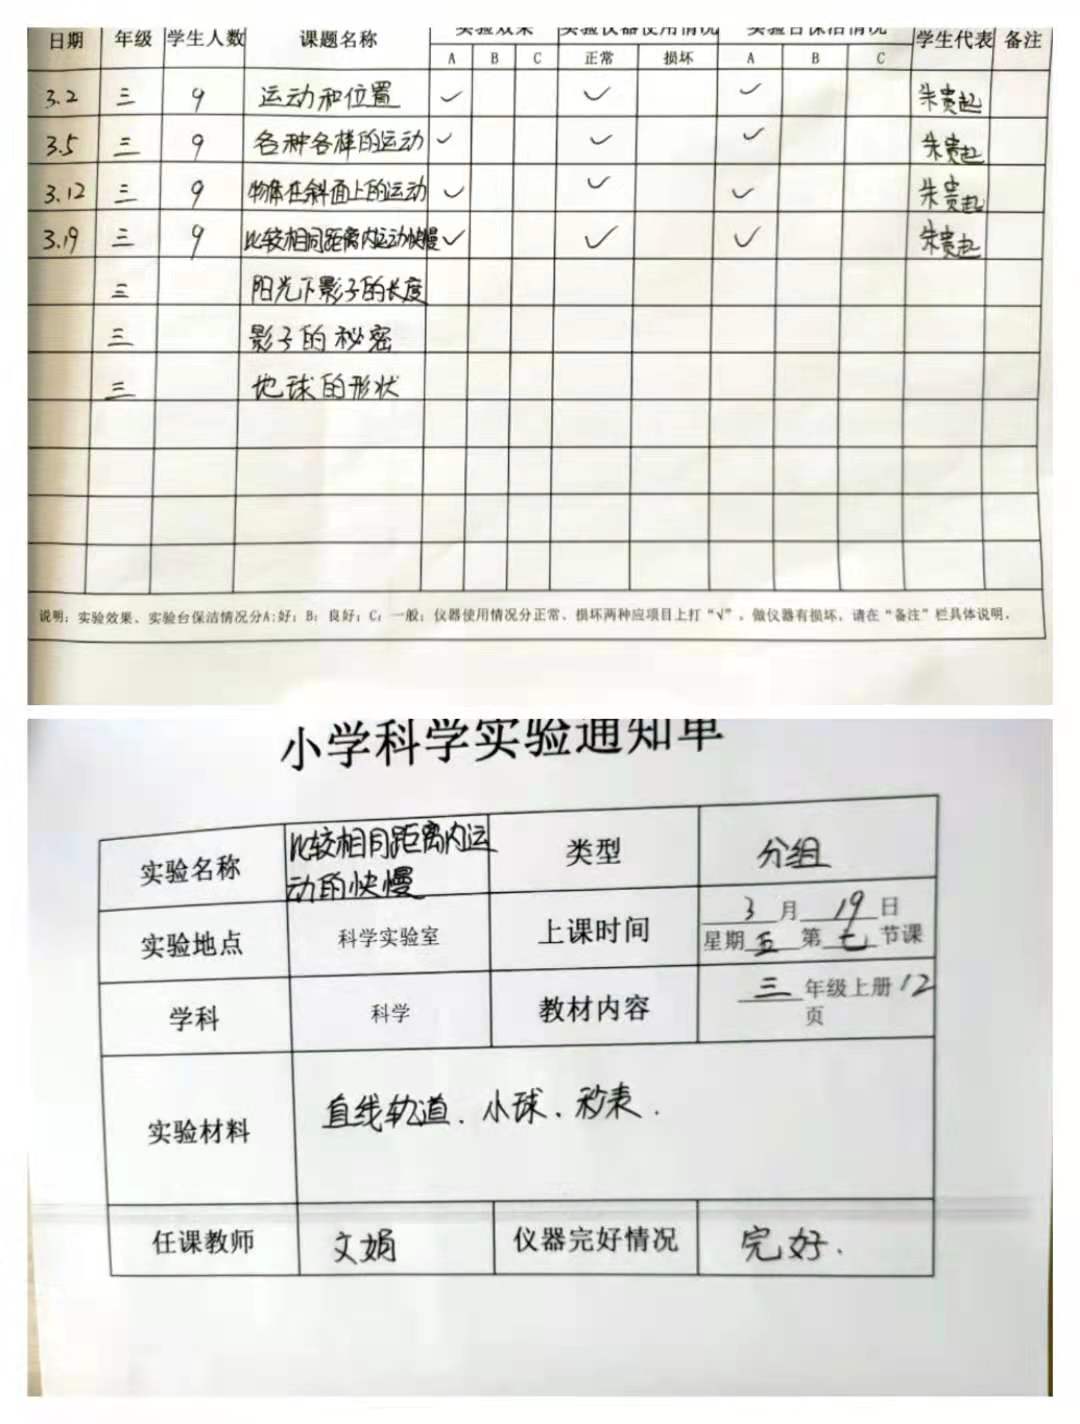 日期 年级 学生人数 课题名称 实验效果 实验仪器使用情况 实验台保洁情况 学生代表 备注
A B C 正常 损坏 A B C
3.2 三 9 运动和位置 ✓ ✓ ✓ 朱贵起
3.5 三 9 各种各样的运动 ✓ ✓ ✓ 朱贵起
3.12 三 9 物体在斜面上的运动 ✓ ✓ ✓ 朱贵起
3.19 三 9 比较相同距离内运动快慢 ✓ ✓ ✓ 朱贵起
三 阳光下影子的长度
三 影子的秘密
三 地球的形状
说明：实验效果、实验台保洁情况分A:好；B：良好；C：一般；仪器使用情况分正常、损坏两种应项目上打“√”。做仪器有损坏，请在“备注”栏具体说明。
小学科学实验通知单
实验名称 比较相同距离内运动的快慢 类型 分组
实验地点 科学实验室 上课时间 3月19日
星期五第七节课
学科 科学 教材内容 三年级上册12
页
实验材料 直线轨道、小球、秒表.
任课教师 文娟 仪器完好情况 完好.